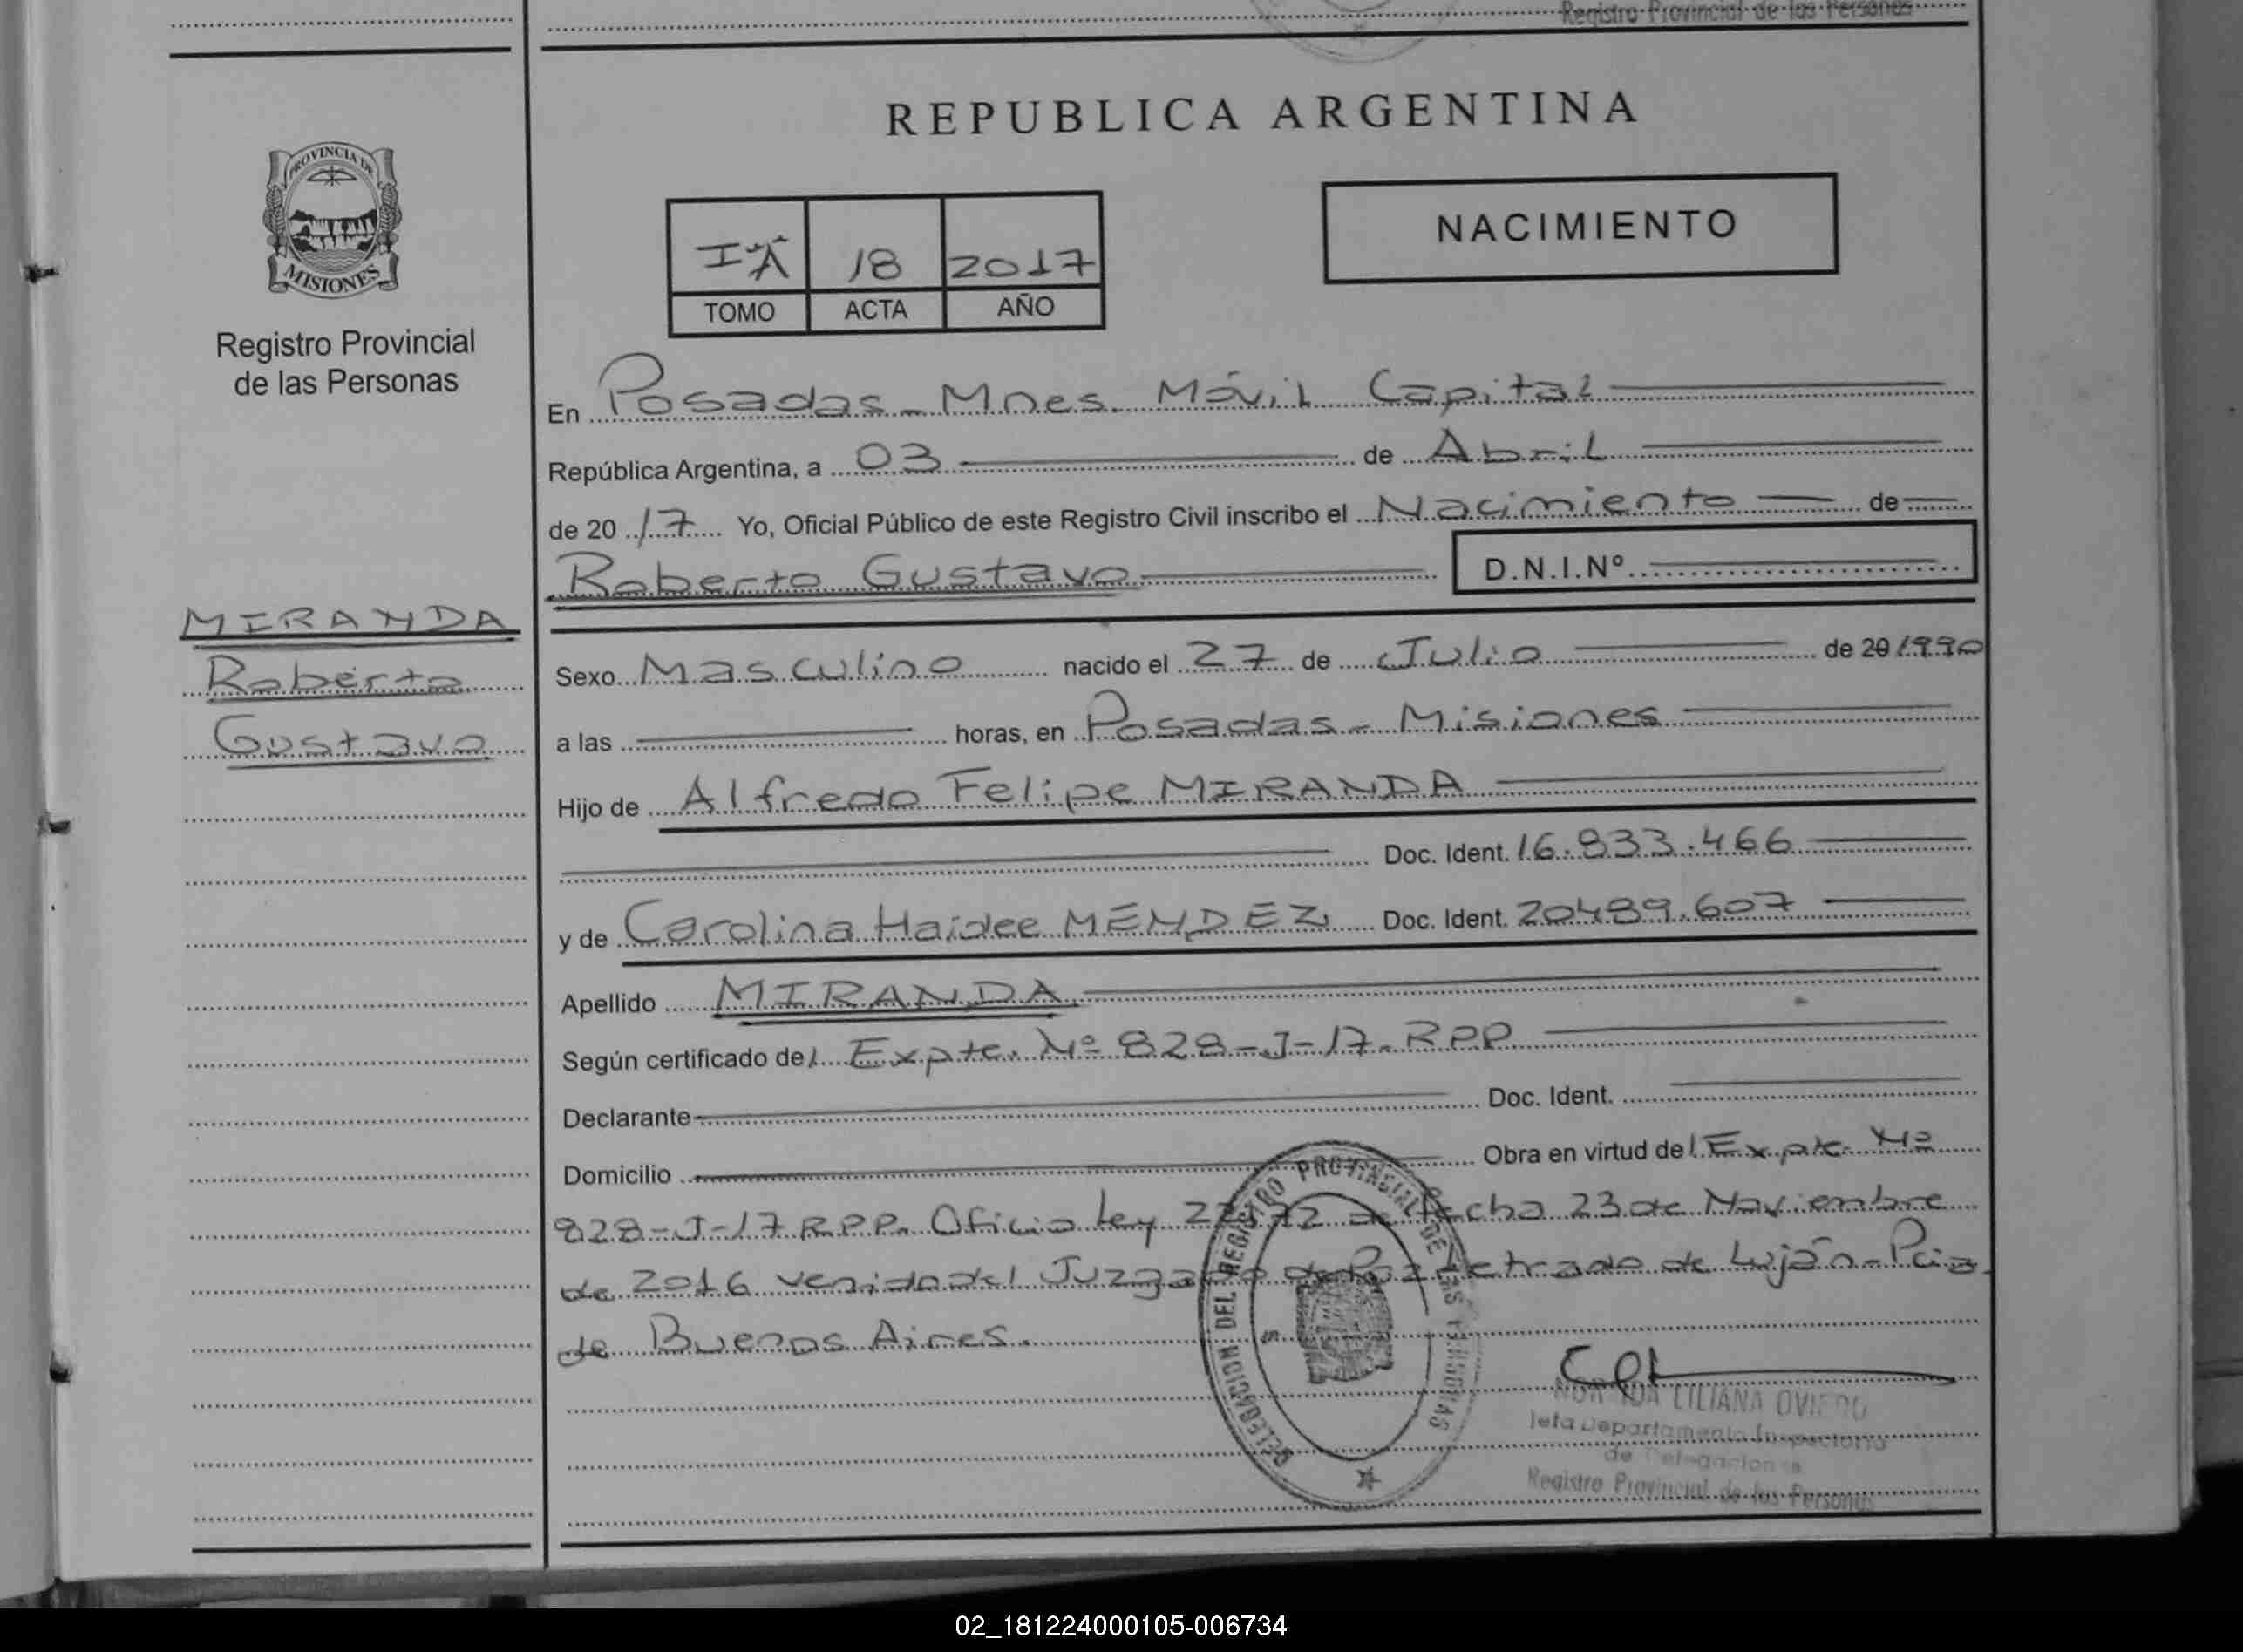 Registro Provincial de las Personas
REPUBLICA ARGENTINA
PROVINCIA DE
MISIONES
Registro Provincial
de las Personas
NACIMIENTO
I "A" 18 2017
TOMO ACTA AÑO
En Posadas - Mnes. Móvil Capital
República Argentina, a 03 de Abril
de 2017 Yo, Oficial Público de este Registro Civil inscribo el Nacimiento de
Roberto Gustavo D.N.I.Nº
MIRANDA
Roberto
Gustavo
Sexo Masculino nacido el 27 de Julio de 20 1990
a las horas, en Posadas - Misiones
Hijo de Alfredo Felipe MIRANDA
Doc. Ident. 16.833.466
y de Carolina Haidee MÉNDEZ Doc. Ident. 20489.607
Apellido MIRANDA
Según certificado del Expte. Nº 828-J-17-RPP
Declarante Doc. Ident.
Domicilio Obra en virtud del Expte. Nº
828-J-17 R.P.P. Oficio Ley 22172 de fecha 23 de Noviembre
de 2016 venido del Juzgado de Paz Letrado de Luján - Pcia.
de Buenos Aires.
DELEGACION DEL REGISTRO PROVINCIAL DE LAS PERSONAS
LILIANA OVIEDO
Jefa Departamento Inspectoria
de Delegaciones
Registro Provincial de las Personas
02_181224000105-006734